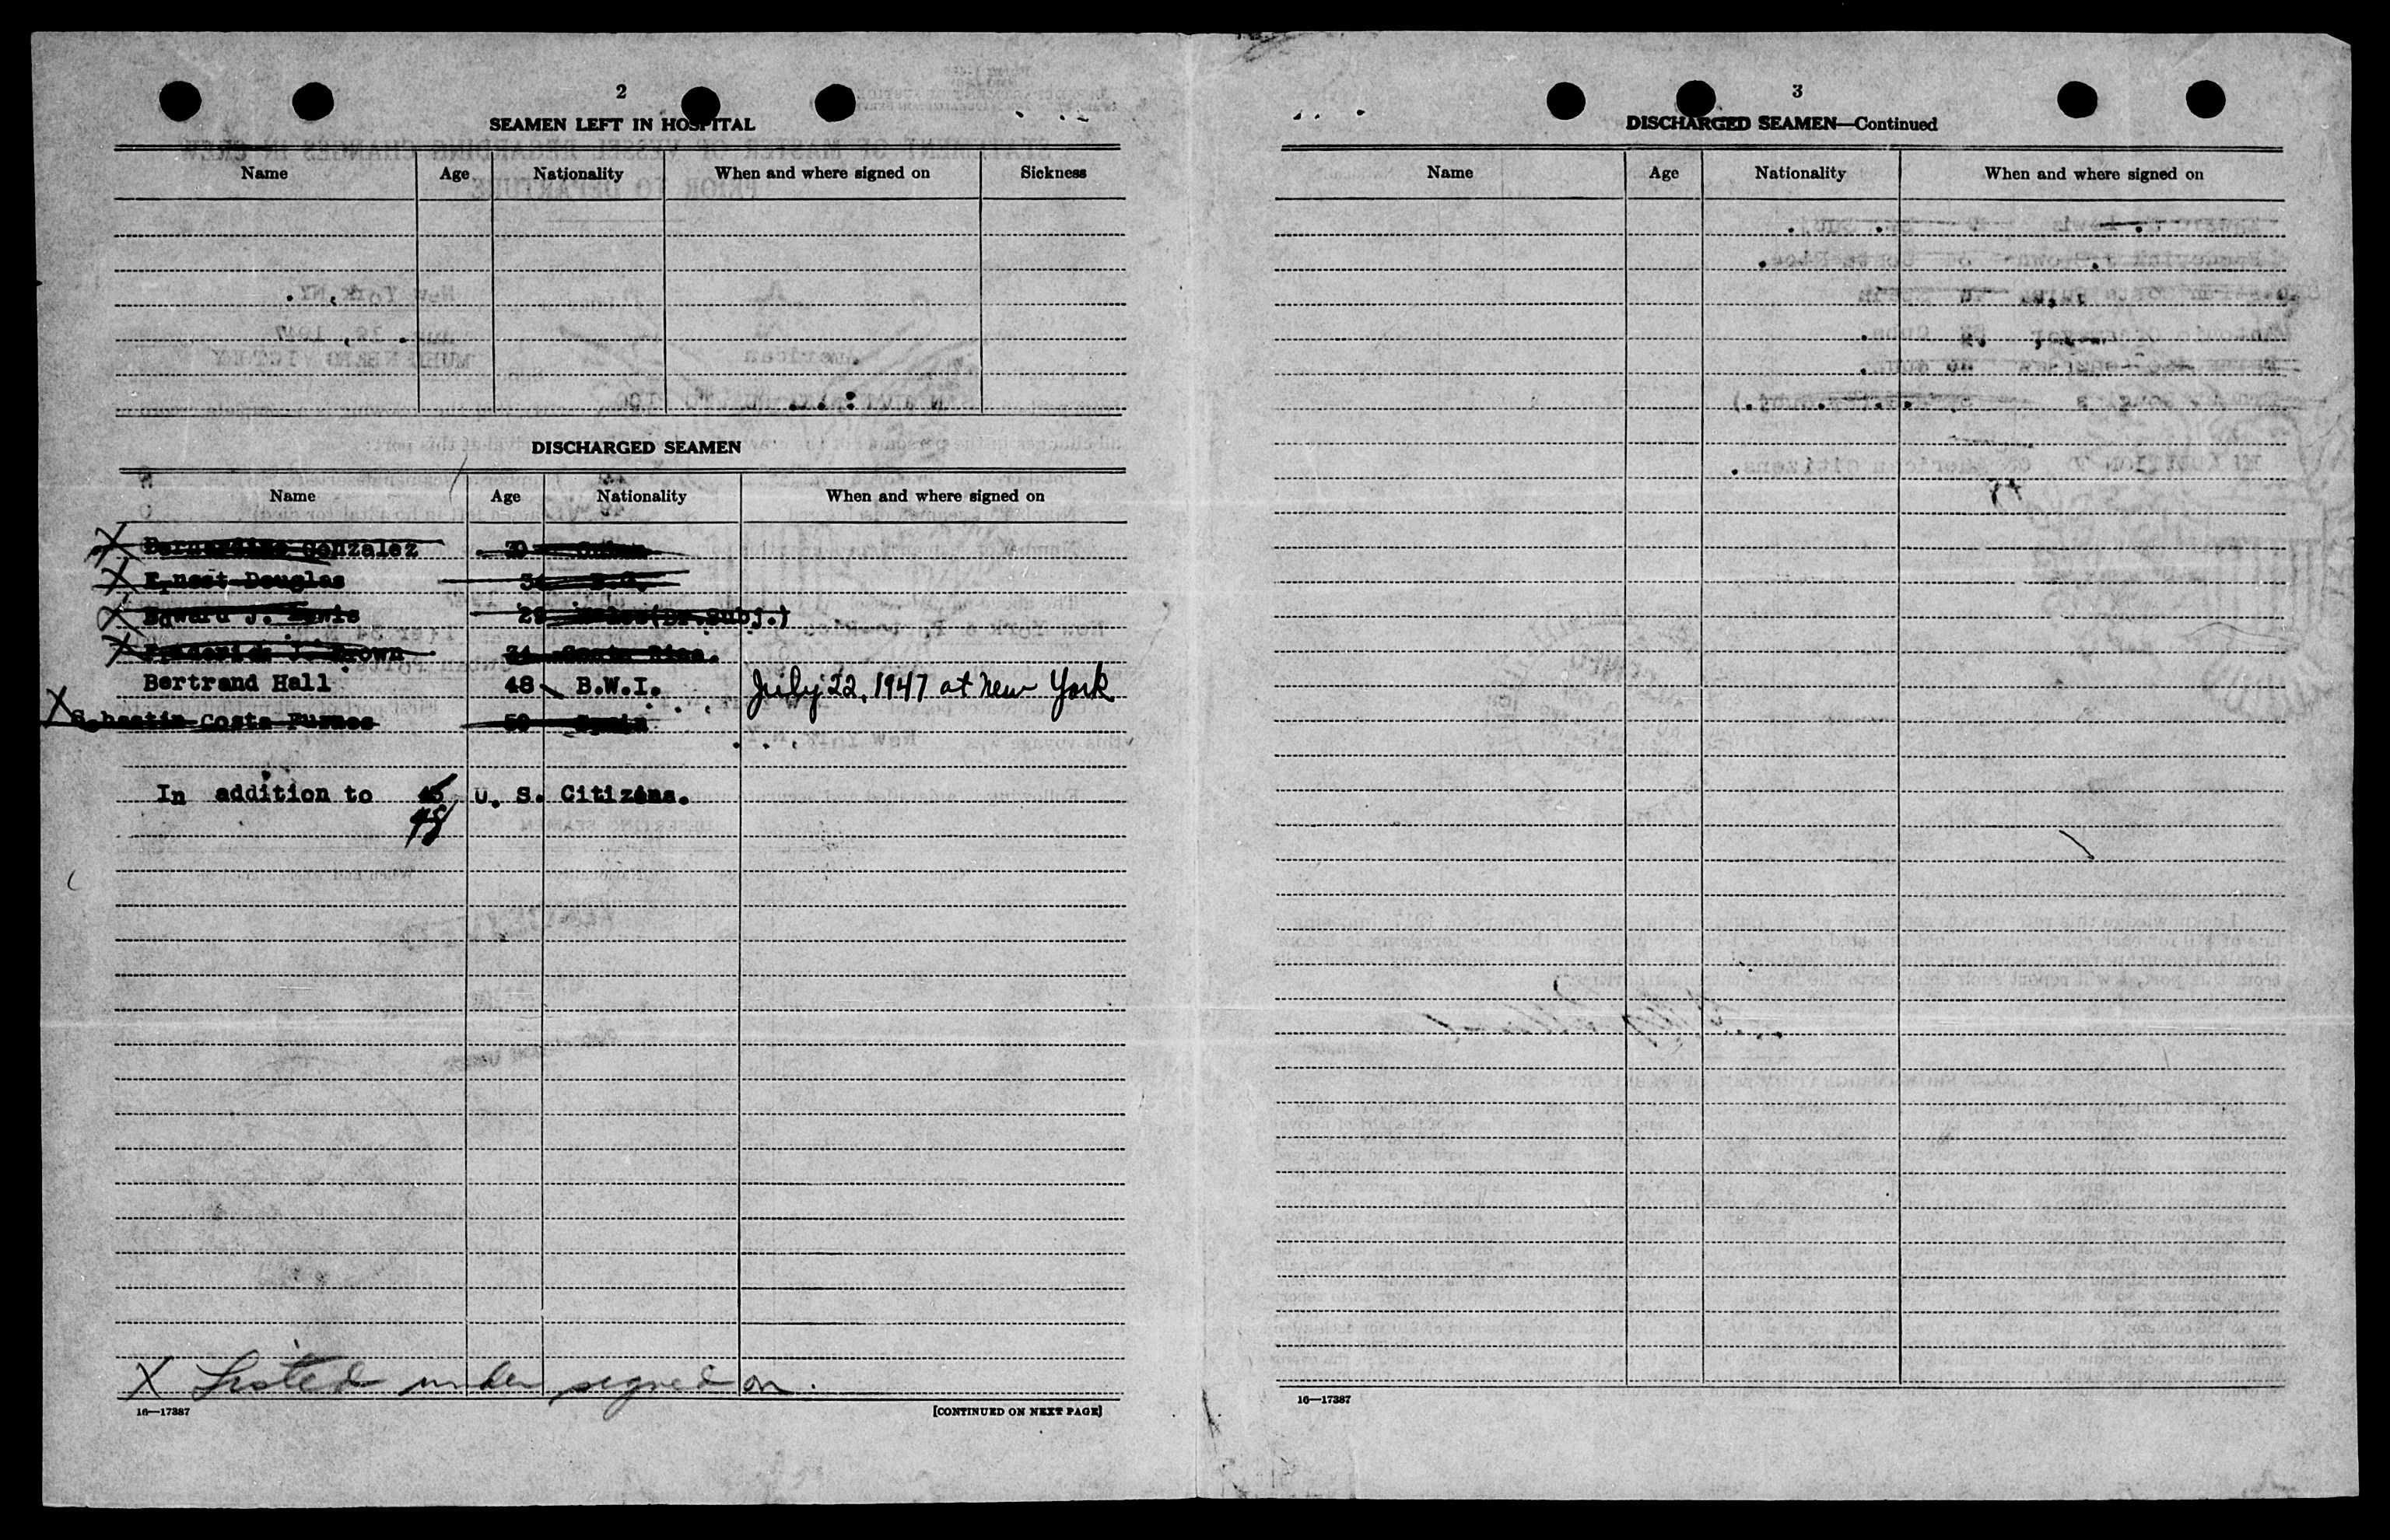 2
SEAMEN LEFT IN HOSPITAL
Name Age Nationality When and where signed on Sickness
DISCHARGED SEAMEN
Name Age Nationality When and where signed on
X Gonzalez
X Ernest Douglas 34
X Edward J. Lewis 29 (Br.Subj.)
X Frederick J. Brown 34 Costa Rica.
Bertrand Hall 48 B.W.I. July 22, 1947 at New York
X Sebastin Costa Furnes 50 Spain
In addition to 48 U. S. Citizens.
X Listed under signed on.
16—17387 [CONTINUED ON NEXT PAGE]
3
DISCHARGED SEAMEN—Continued
Name Age Nationality When and where signed on
16—17387